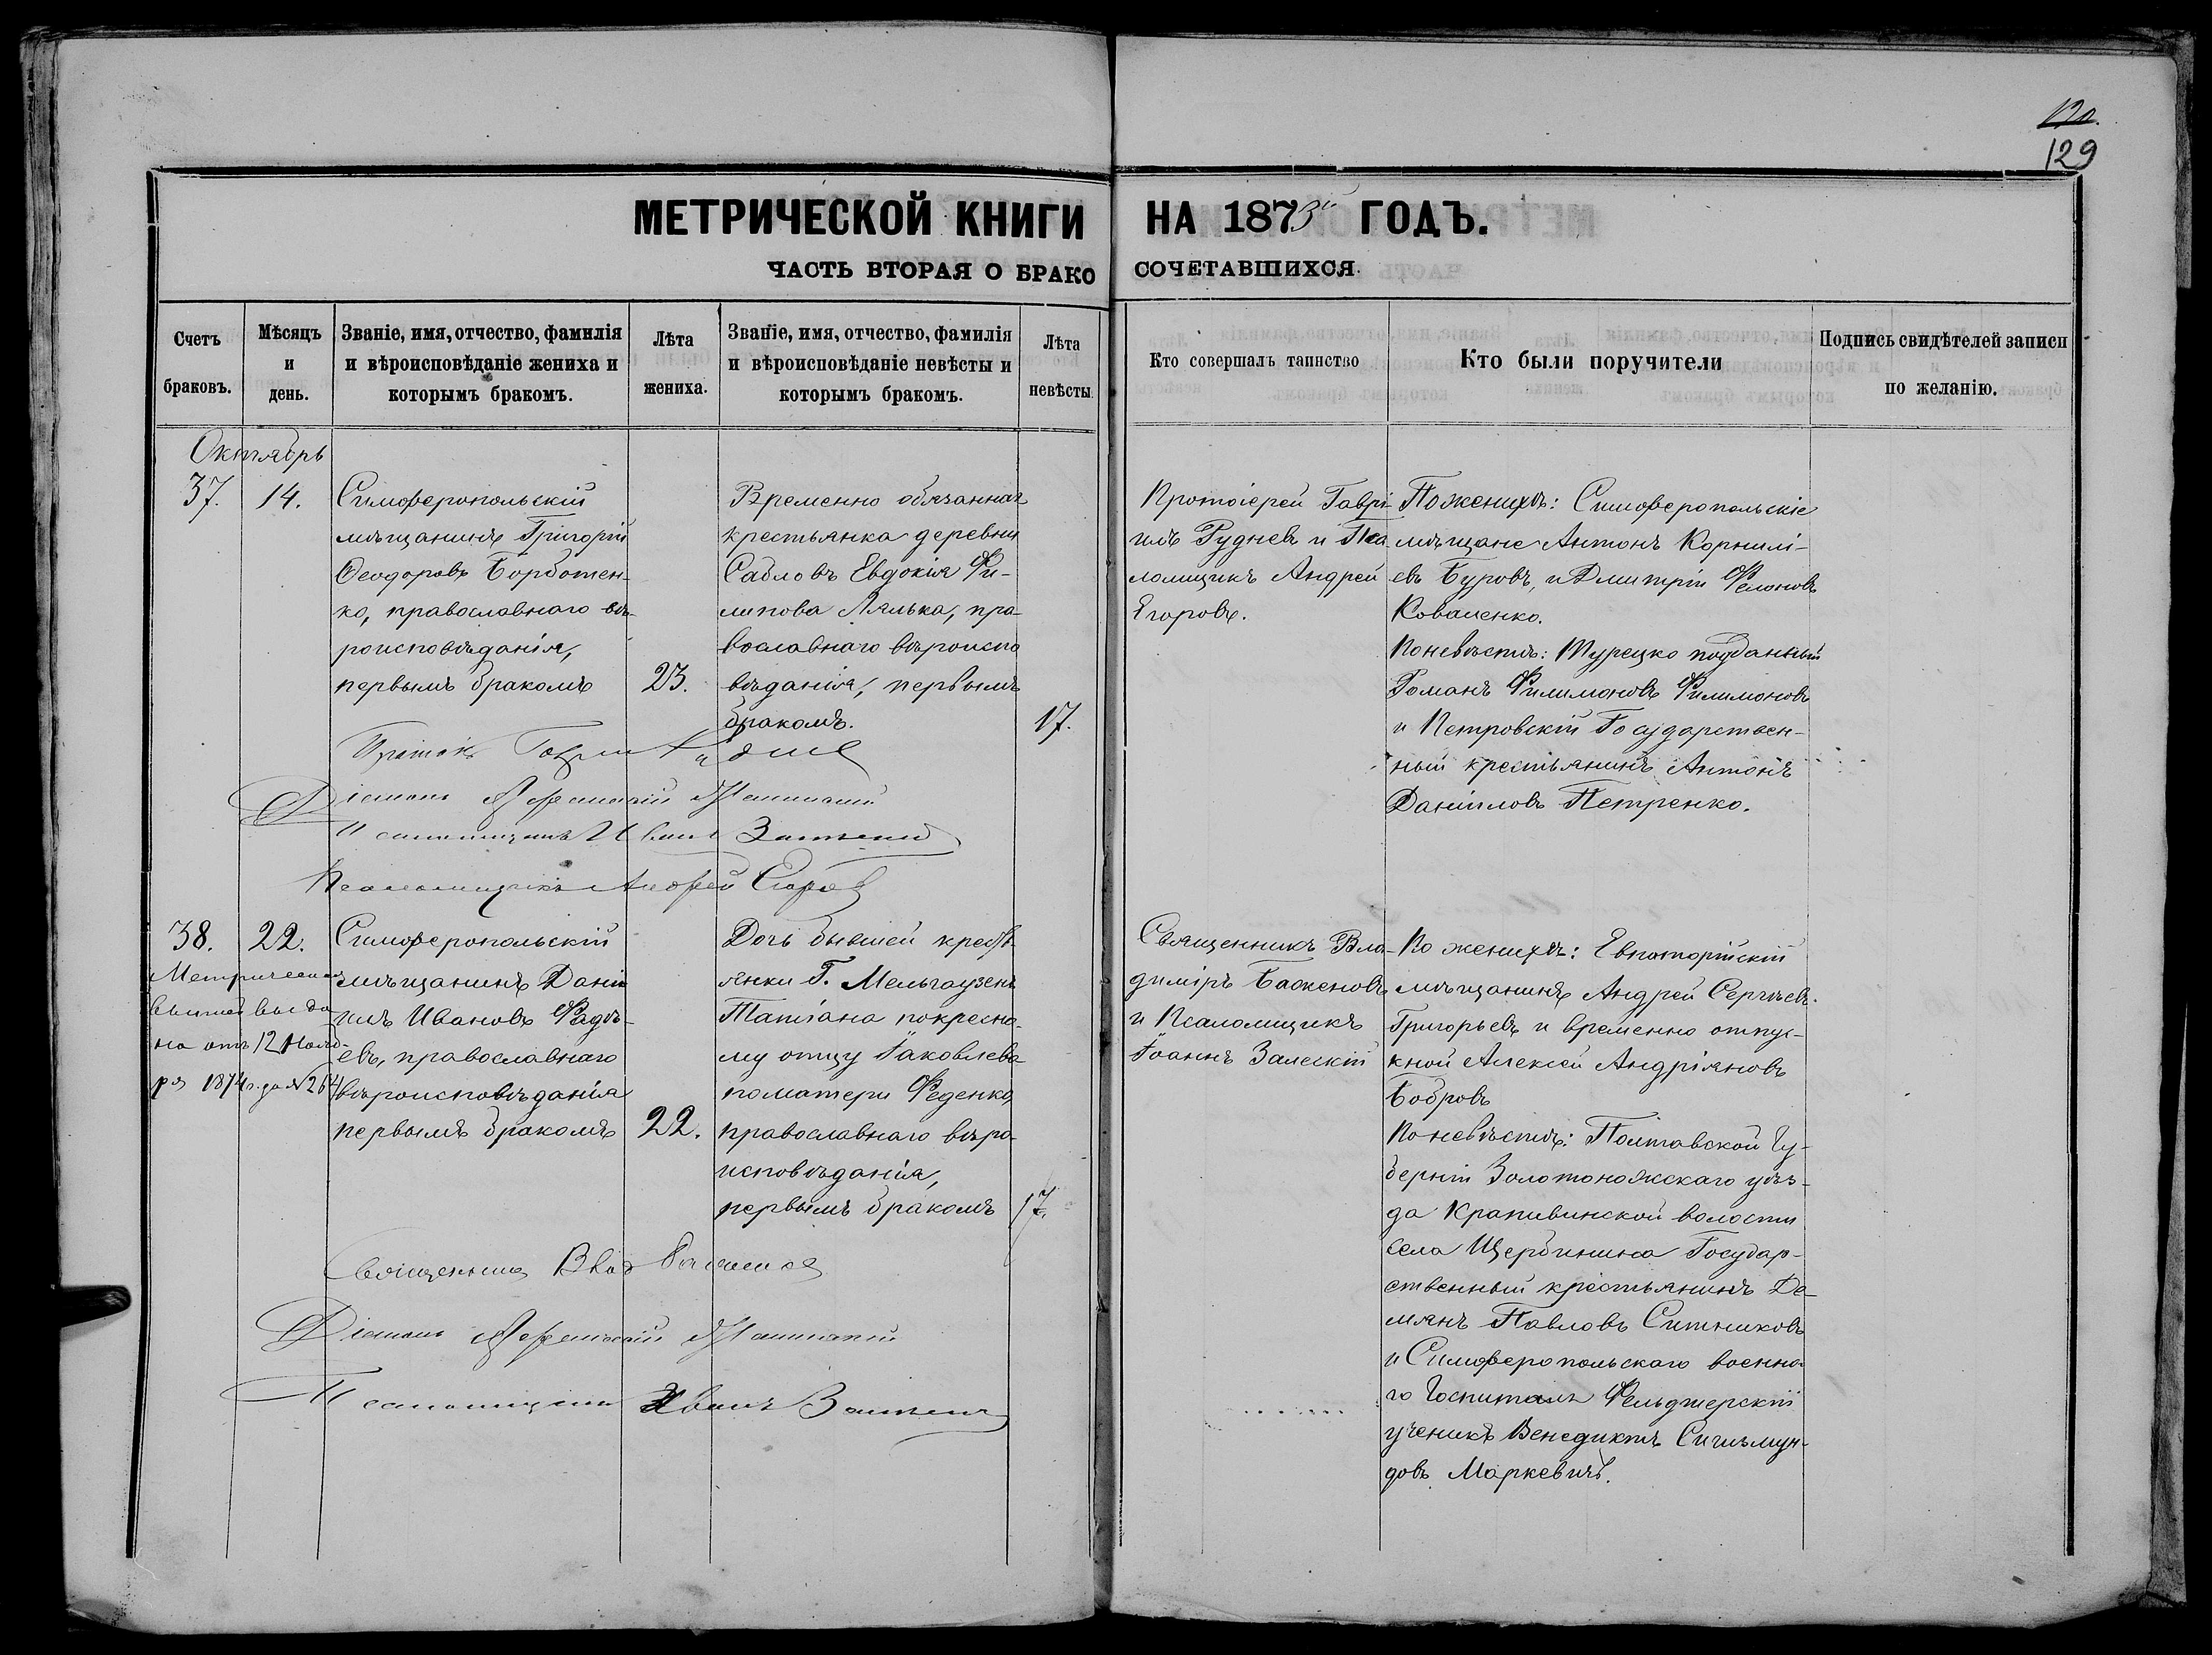 120.
129
МЕТРИЧЕСКОЙ КНИГИ НА 1873й ГОДЪ.
ЧАСТЬ ВТОРАЯ О БРАКОСОЧЕТАВШИХСЯ.
Счетъ браковъ.
Мѣсяцъ и день.
Званіе, имя, отчество, фамилія
и вѣроисповѣданіе жениха и
которымъ бракомъ.
Лѣта жениха.
Званіе, имя, отчество, фамилія
и вѣроисповѣданіе невѣсты и
которымъ бракомъ.
Лѣта невѣсты.
Кто совершалъ таинство
Кто были поручители
Подпись свидѣтелей записи
по желанію.
Октябрь
37.
14.
Симферопольскій
мѣщанинъ Григорій
Ѳеодоровъ Борботен-
ко, православнаго вѣ-
роисповѣданія,
первымъ бракомъ
23.
Временно обязанная
крестьянка деревни
Сабловъ Евдокія Фи-
липова Лялька, пра-
вославнаго вѣроиспо
вѣданія, первымъ
бракомъ.
17.
Протоіерей Гаврі-
илъ Рудневъ и Пса
ломщикъ Андрей
Егоровъ.
По женихѣ: Симферопольскіе
мѣщане Антонъ Корнилі-
евъ Буровъ, и Дмитрій Филоновъ
Коваленко.
По невѣстѣ: Турецко подданный
Романъ Филимоновъ Филимоновъ
и Петровскій Государствен-
ный крестьянинъ Антонъ
Даніиловъ Петренко.
Діаконъ
Псаломщикъ Иванъ
Псаломщикъ Андрей Егоровъ
38.
22.
Метрическая
выпись выда
на отъ 12 Нояб-
ря 1874 г. за № 264
Симферопольскій
мѣщанинъ Дани
илъ Ивановъ Фадѣ-
евъ, православнаго
вѣроисповѣданія
первымъ бракомъ
22.
Дочь бывшей кресть-
янки Г. Мельгаузенъ
Татіана по кресно-
му отцу Іаковлева
по матери Феденко,
православнаго вѣро-
исповѣданія,
первымъ бракомъ
17.
Священникъ Вла-
диміръ Баженовъ
и Псаломщикъ
Іоаннъ Залескій
По женихѣ: Евпаторійскій
мѣщанинъ Андрей Сергѣевъ
Григорьевъ и временно отпус-
кной Алексей Андріяновъ
Бобровъ
По невѣстѣ: Полтавской Гу-
берніи Золотоножскаго уѣз-
да Крапивинской волости
села Щербинина Государ-
ственный крестьянинъ Де-
мянъ Павловъ Ситниковъ
и Симферопольскаго военна-
го Госпиталя Фельдшерскій
ученикъ Венедиктъ Сигизмун-
довъ Маркевичъ.
Священникъ Влад Баженов
Діаконъ
Псаломщикъ Иванъ